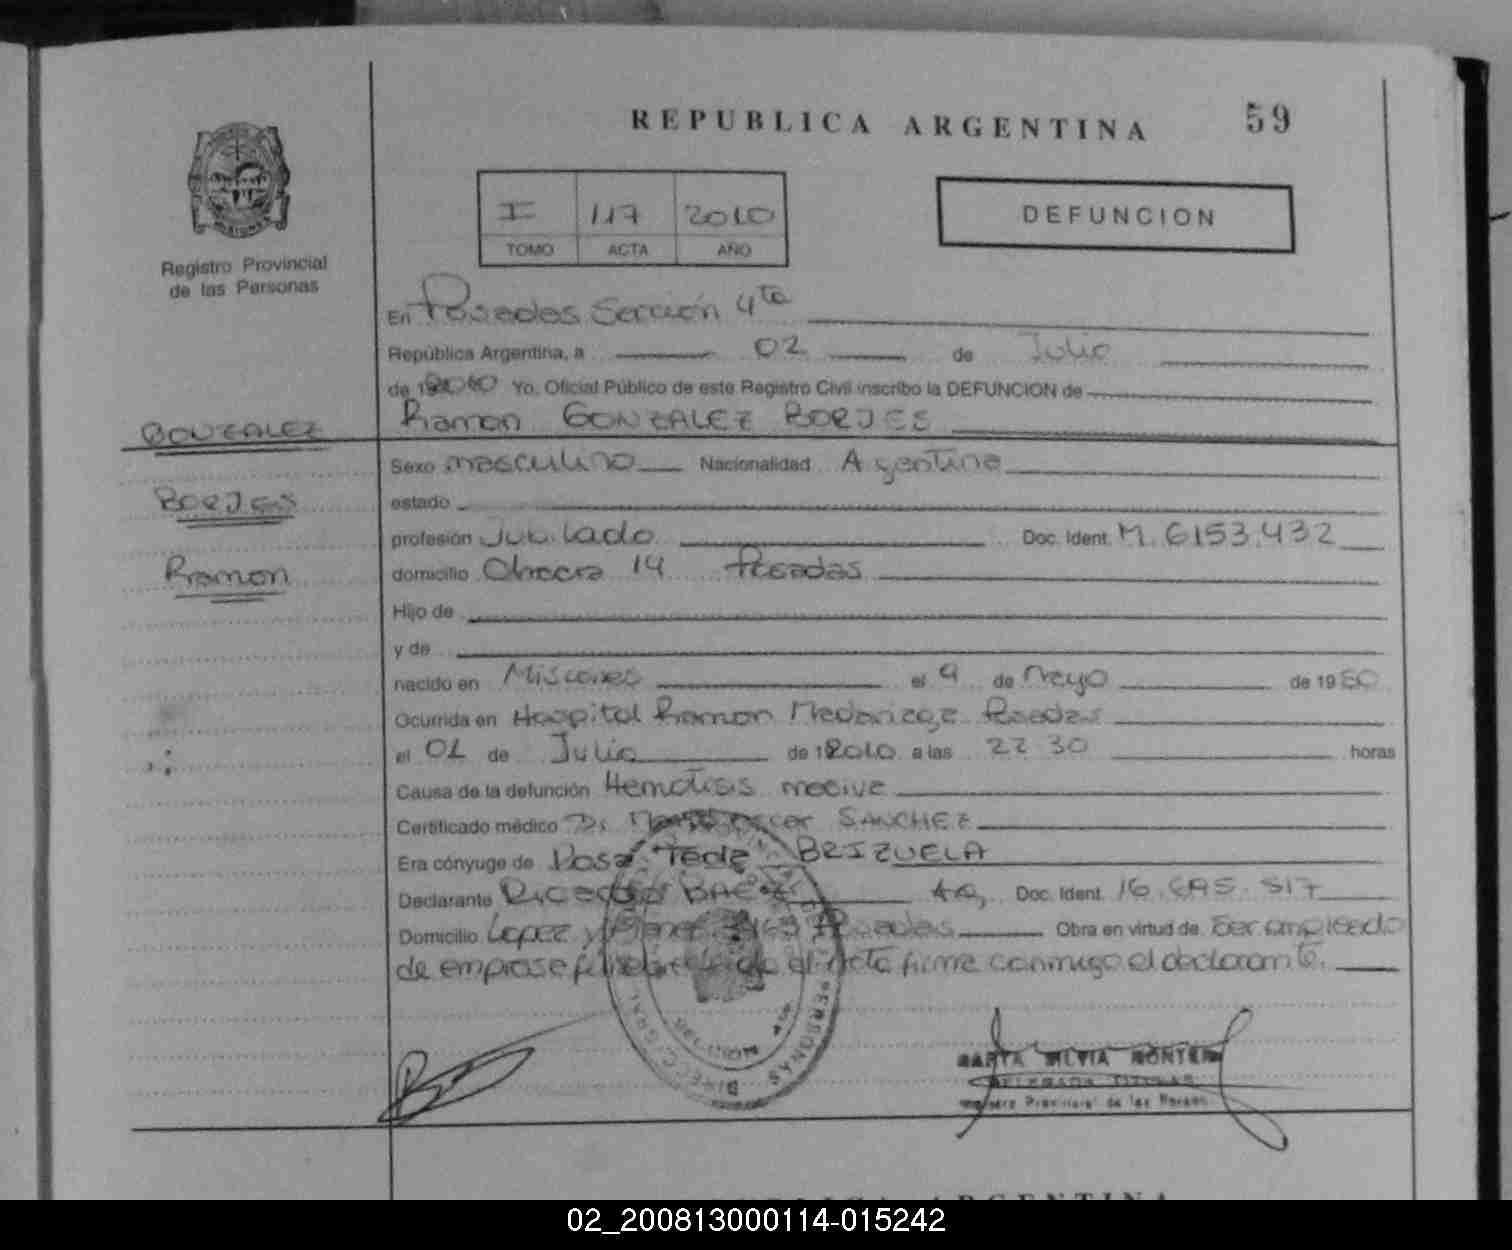 REPUBLICA ARGENTINA 59
I 117 2010
TOMO ACTA AÑO
DEFUNCION
Registro Provincial
de las Personas
En Posadas Sección 4ta
República Argentina, a 02 de Julio
de 2010 Yo, Oficial Público de este Registro Civil inscribo la DEFUNCION de
Ramon GONZALEZ BORJES
GONZALEZ
BORJES
Ramon
Sexo masculino Nacionalidad Argentina
estado
profesión Jubilado Doc. Ident. M. 6153.432
domicilio Chacra 14 Posadas
Hijo de
y de
nacido en Misiones el 9 de Mayo de 19
Ocurrida en Hospital Ramon Madariaga Posadas
el 01 de Julio de 2010 a las 22 30 horas
Causa de la defunción Hemotisis masiva
Certificado médico Dr SANCHEZ
Era cónyuge de Rosa BRIZUELA
Declarante Ricardo BAEZ Doc. Ident. 16. 517
Domicilio Lopez y Planes Posadas Obra en virtud de Ser empleado
de empresa acta firma conmigo el declarante.
MARTA SILVIA
DELEGADA TITULAR
Registro Provincial de las Person
REPUBLICA ARGENTINA
02_200813000114-015242